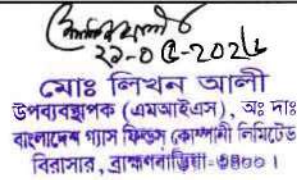 ২১-০৫-202৬
মোঃ লিখন আলী
উপব্যবস্থাপক (এমআইএস), অঃ দাঃ
বাংলাদেশ গ্যাস ফিল্ডস্ কোম্পানী লিমিটেড
বিরাসার, ব্রাহ্মণবাড়িয়া-৩৪০০।